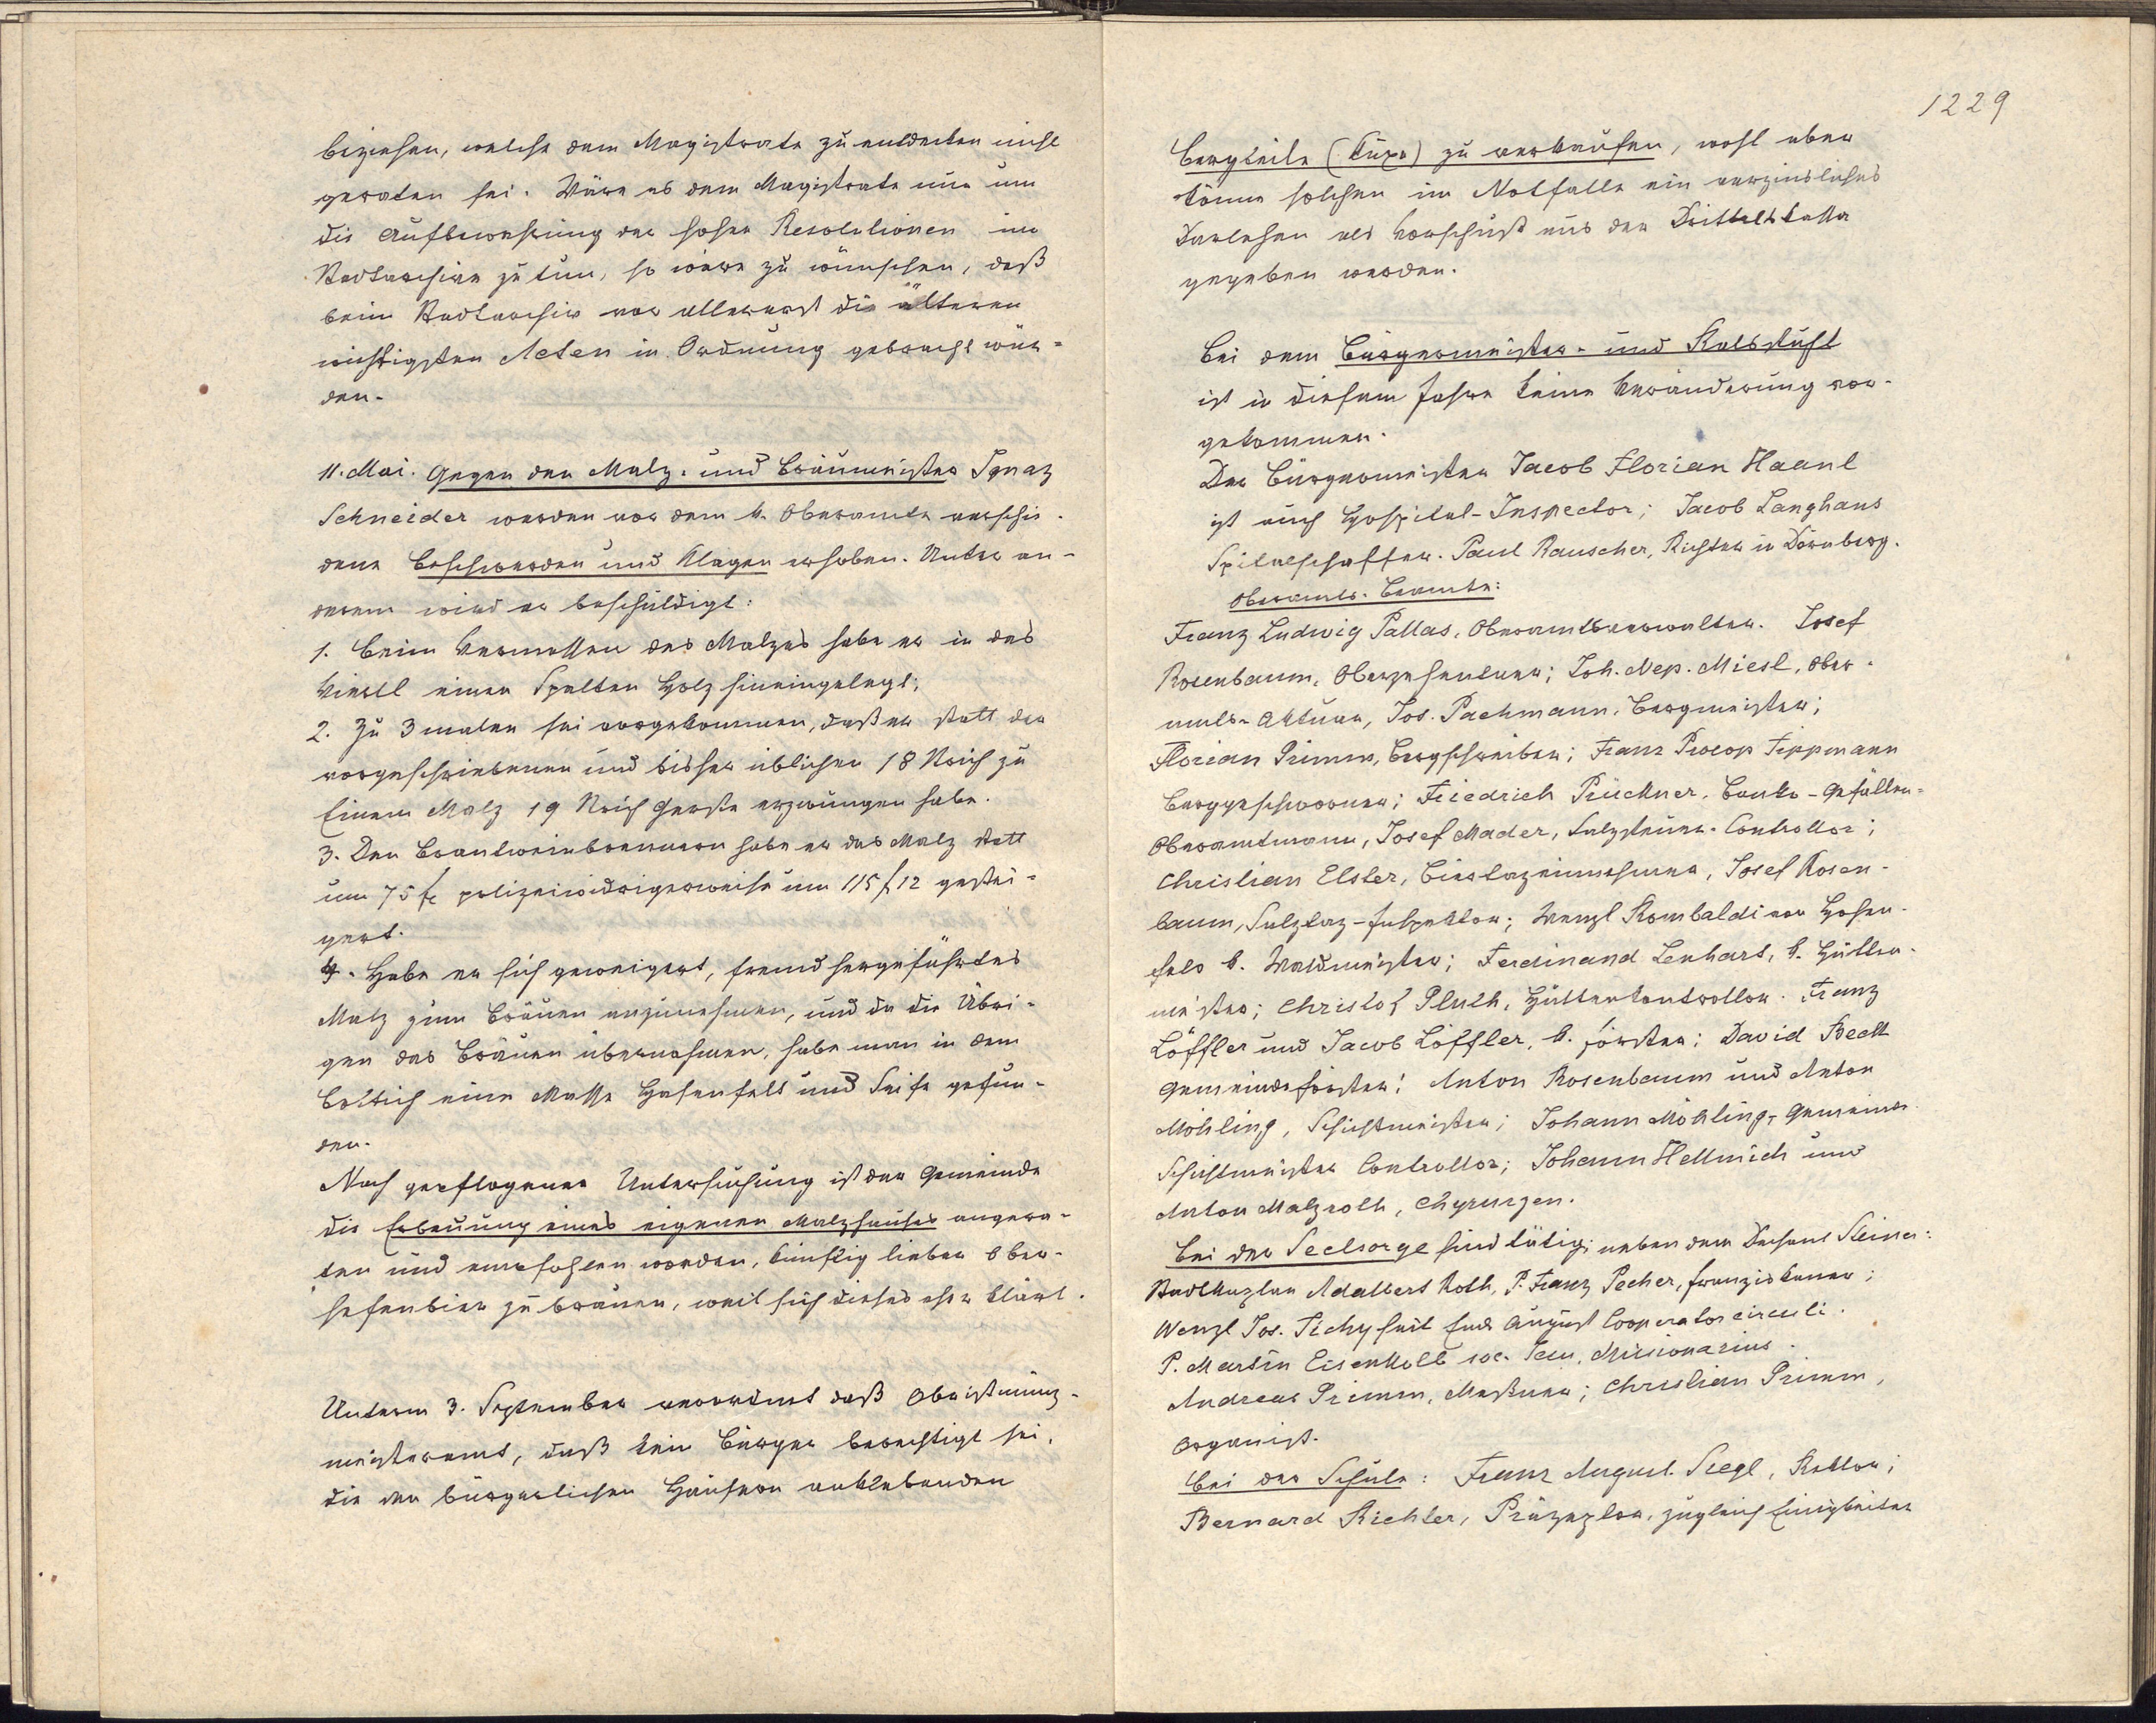 beziehen, welche dem Magistrate zu entdecken nicht
geraten sei. Wäre es dem Magistrate nur um
die Aufbewahrung der hohen Resolutionen im
Stadtarchive zu tun, so wäre zu wünschen, daß
beim Stadtarchiv vor allererst die älteren
wichtigsten Acten in Ordnung gebracht wür-
den.
11. Mai. Gegen den Malz- und Bräumeister Ignaz
Schneider werden vor dem k. Oberamte verschie-
dene Beschwerden und Klagen erhoben. Unter an-
derem wird er beschuldigt:
1. Beim Vermessen des Malzes habe er in das
Viertl einen Spalten Holz hineingelegt;
2. Zu 3 malen sei vorgekommen, daß er statt der
vorgeschriebenen und bisher üblichen 18 Strich zu
Einem Malz 19 Strich Gerste erzwungen habe.
3. Den Brantweinbrennern habe er das Malz statt
um 75 fr polizeiwidrigerweise um 115 f 12 gestei-
gert.
4. Habe er sich geweigert, fremd hergeführtes
Malz zum Bräuen anzunehmen, und da die Übri-
gen das Bräuen übernahmen, habe man in dem
Bottich eine Masse Hasenfett und Seife gefun-
den.
Nach gepflogener Untersuchung ist der Gemeinde
die Erbauung eines eigenen Malzhauses angera-
ten und empfohlen worden, künftig lieber Ober-
hefenbier zu bräuen, weil sich dieses eher klärt.
Unterm 3. September verordnet daß Obristmünz-
meisteramt, daß kein Bürger berechtigt sei,
die den bürgerlichen Häusern anklebenden
1229
Bergteile (Kuxe) zu verkaufen, wohl aber
könne solchen im Notfalle ein verzinsliches
Darlehen als Vorschuß aus der Drittelskassa
gegeben werden.
Bei dem Bürgermeister- und Ratsstuhl
ist in diesem Jahre keine Veränderung vor-
gekommen.
Der Bürgermeister Jacob Florian Haanl
ist auch Hospital-Inspector; Jacob Langhans
Spitalschaffer. Paul Rauscher, Richter in Dörnberg.
Oberamts-Beamte:
Franz Ludwig Pallas, Oberamtsverwalter. Josef
Rosenbaum, Oberzehentner; Joh. Nep. Miesl, Ober-
amts-Aktuar, Jos. Pachmann, Bergmeister;
Florian Primm, Bergschreiber; Franz Procop Tippmann
Berggeschworner; Friedrich Prückner, Banko-Gefällen-
Oberamtmann, Josef Mader, Salzsteuer-Controllor;
Christian Elster, Biertazeinnehmer, Josef Rosen-
baum, Salztaz-Inspektor; Wenzl Rombaldi von Hohen-
fels k. Waldmeister; Ferdinand Lenhart, k. Hütten-
meister; Christof Pluth, Hüttenkontrollor. Franz
Löffler und Jacob Löffler, k. Förster; David Beck
Gemeindeförster; Anton Rosenbaum und Anton
Möhling, Schichtmeister; Johann Möhling, Gemeinde
Schichtmeister Controllor; Johann Hellmich und
Anton Malzroth, Chyrurgen.
Bei der Seelsorge sind tätig: neben dem Dechant Steiner:
Stadtkaplan Adalbert Roth, P. Franz Pecher, Franziskaner;
Wenzl Jos. Tichy seit Ende August Cooperator circuli.
P. Martin Eisenkolb soc. Jesu, Missionarius.
Andreas Primm, Meßner; Christian Primm,
Organist.
Bei der Schule: Franz August Siegl, Rektor;
Bernard Richter, Präzeptor, zugleich